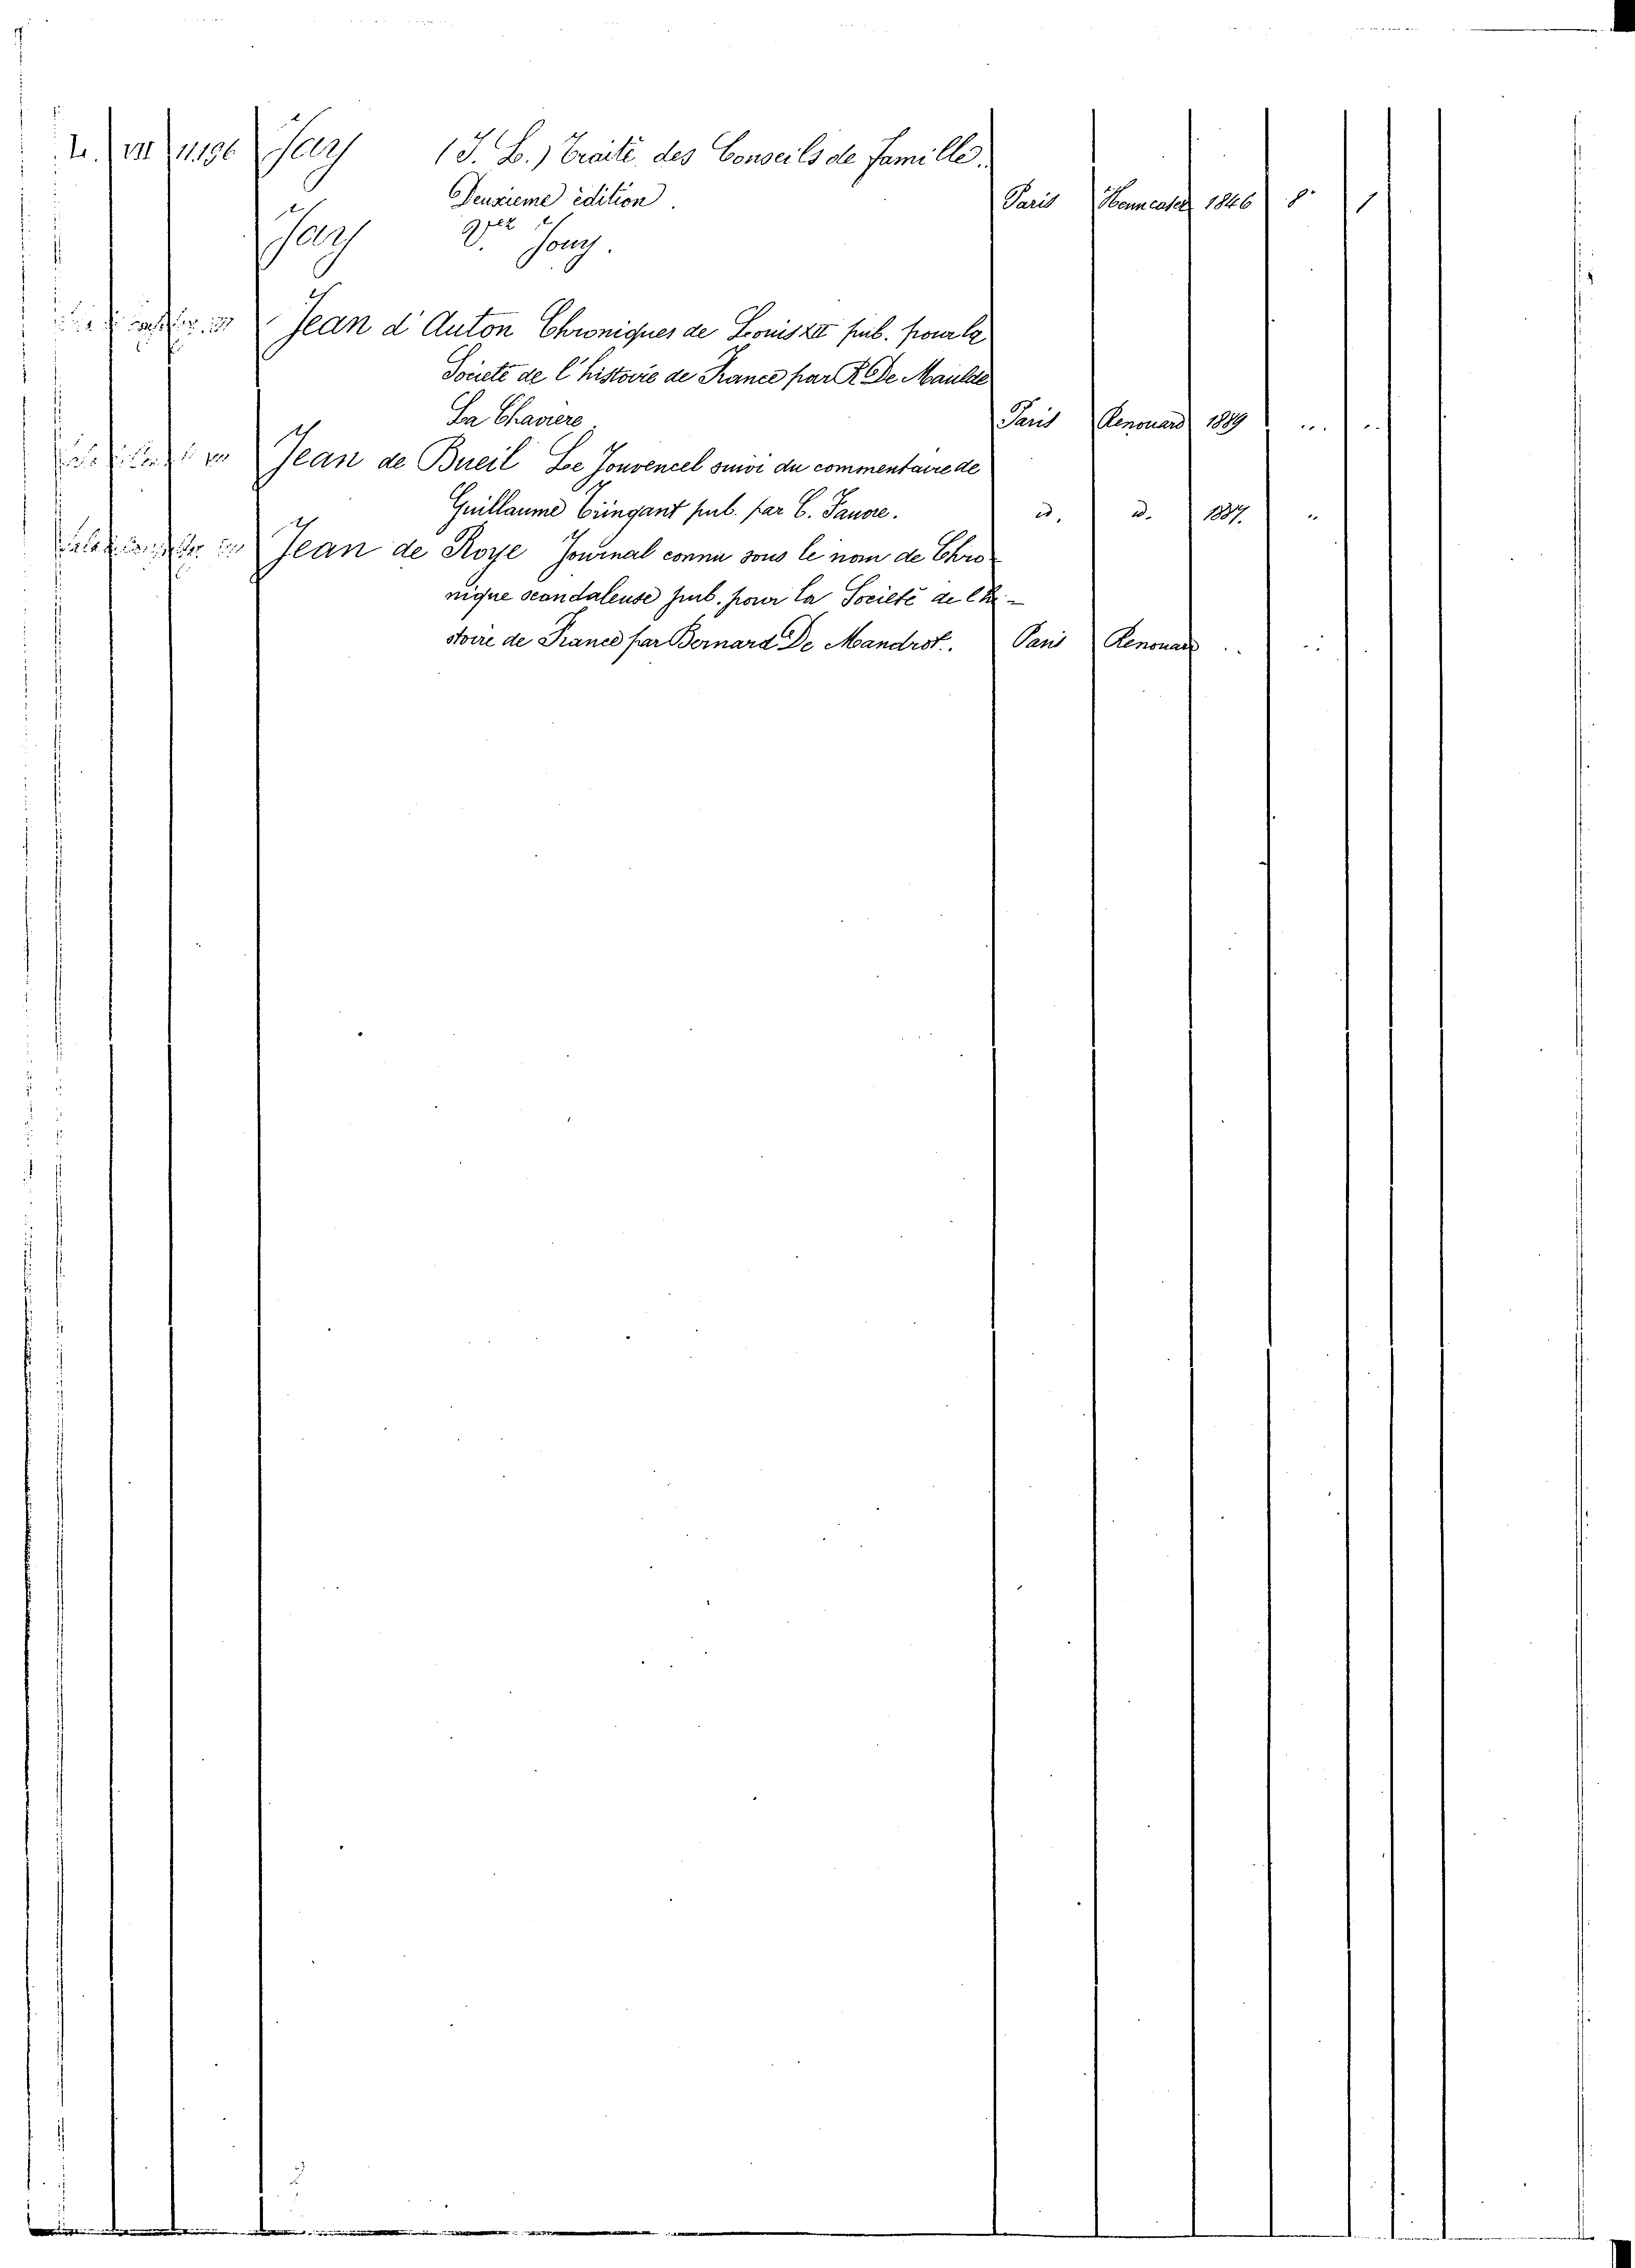 L. VII 11.196 Jay (J. L.) Traité des Conseils de famille.
Deuxieme édition. Paris 1846 8° 1
Jay V. Jouy.
Jean d'Auton Chroniques de Louis XII pub. pour la
Societé de l'histoire de France par R. De Maulde
La Chaviere. Paris Renouard 1889
Jean de Bueil Le Jouvencel suivi du commentaire de
Guillaume Tringant pub. par C. Favre. id. id. 1887.
Jean de Roye Journal connu sous le nom de Chro
nique scandaleuse pub. pour la Societé de l'hi-
stoire de France par Bernard De Mandrot. Paris Renouard